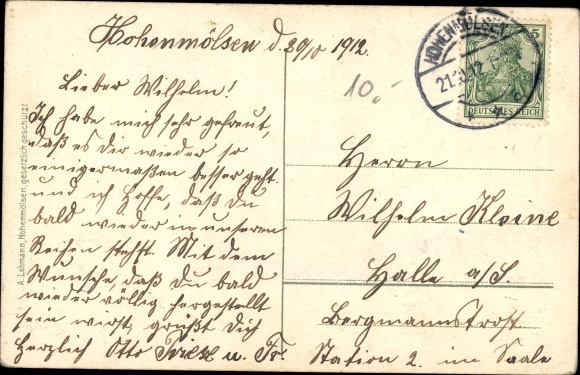 Hohenmölsen d. 20/10 1912.
Lieber Wilhelm!
Ich habe mich sehr gefreut,
daß es dir wieder so
einigermaßen besser geht
und ich hoffe, daß Du
bald wieder in unseren
Reihen stehst. Mit dem
Wunsche, daß Du bald
wieder völlig hergestellt
sein wirst, grüßt Dich
herzlich Otto u. Fr.
A. Lehmann, Hohenmölsen, gesetzlich geschützt
10.-
HOHENMÖLSEN
21.10.12
5
DEUTSCHES REICH
Herrn
Wilhelm Kleine
Halle a/S.
Bergmannstrost
Station 2. im Saale